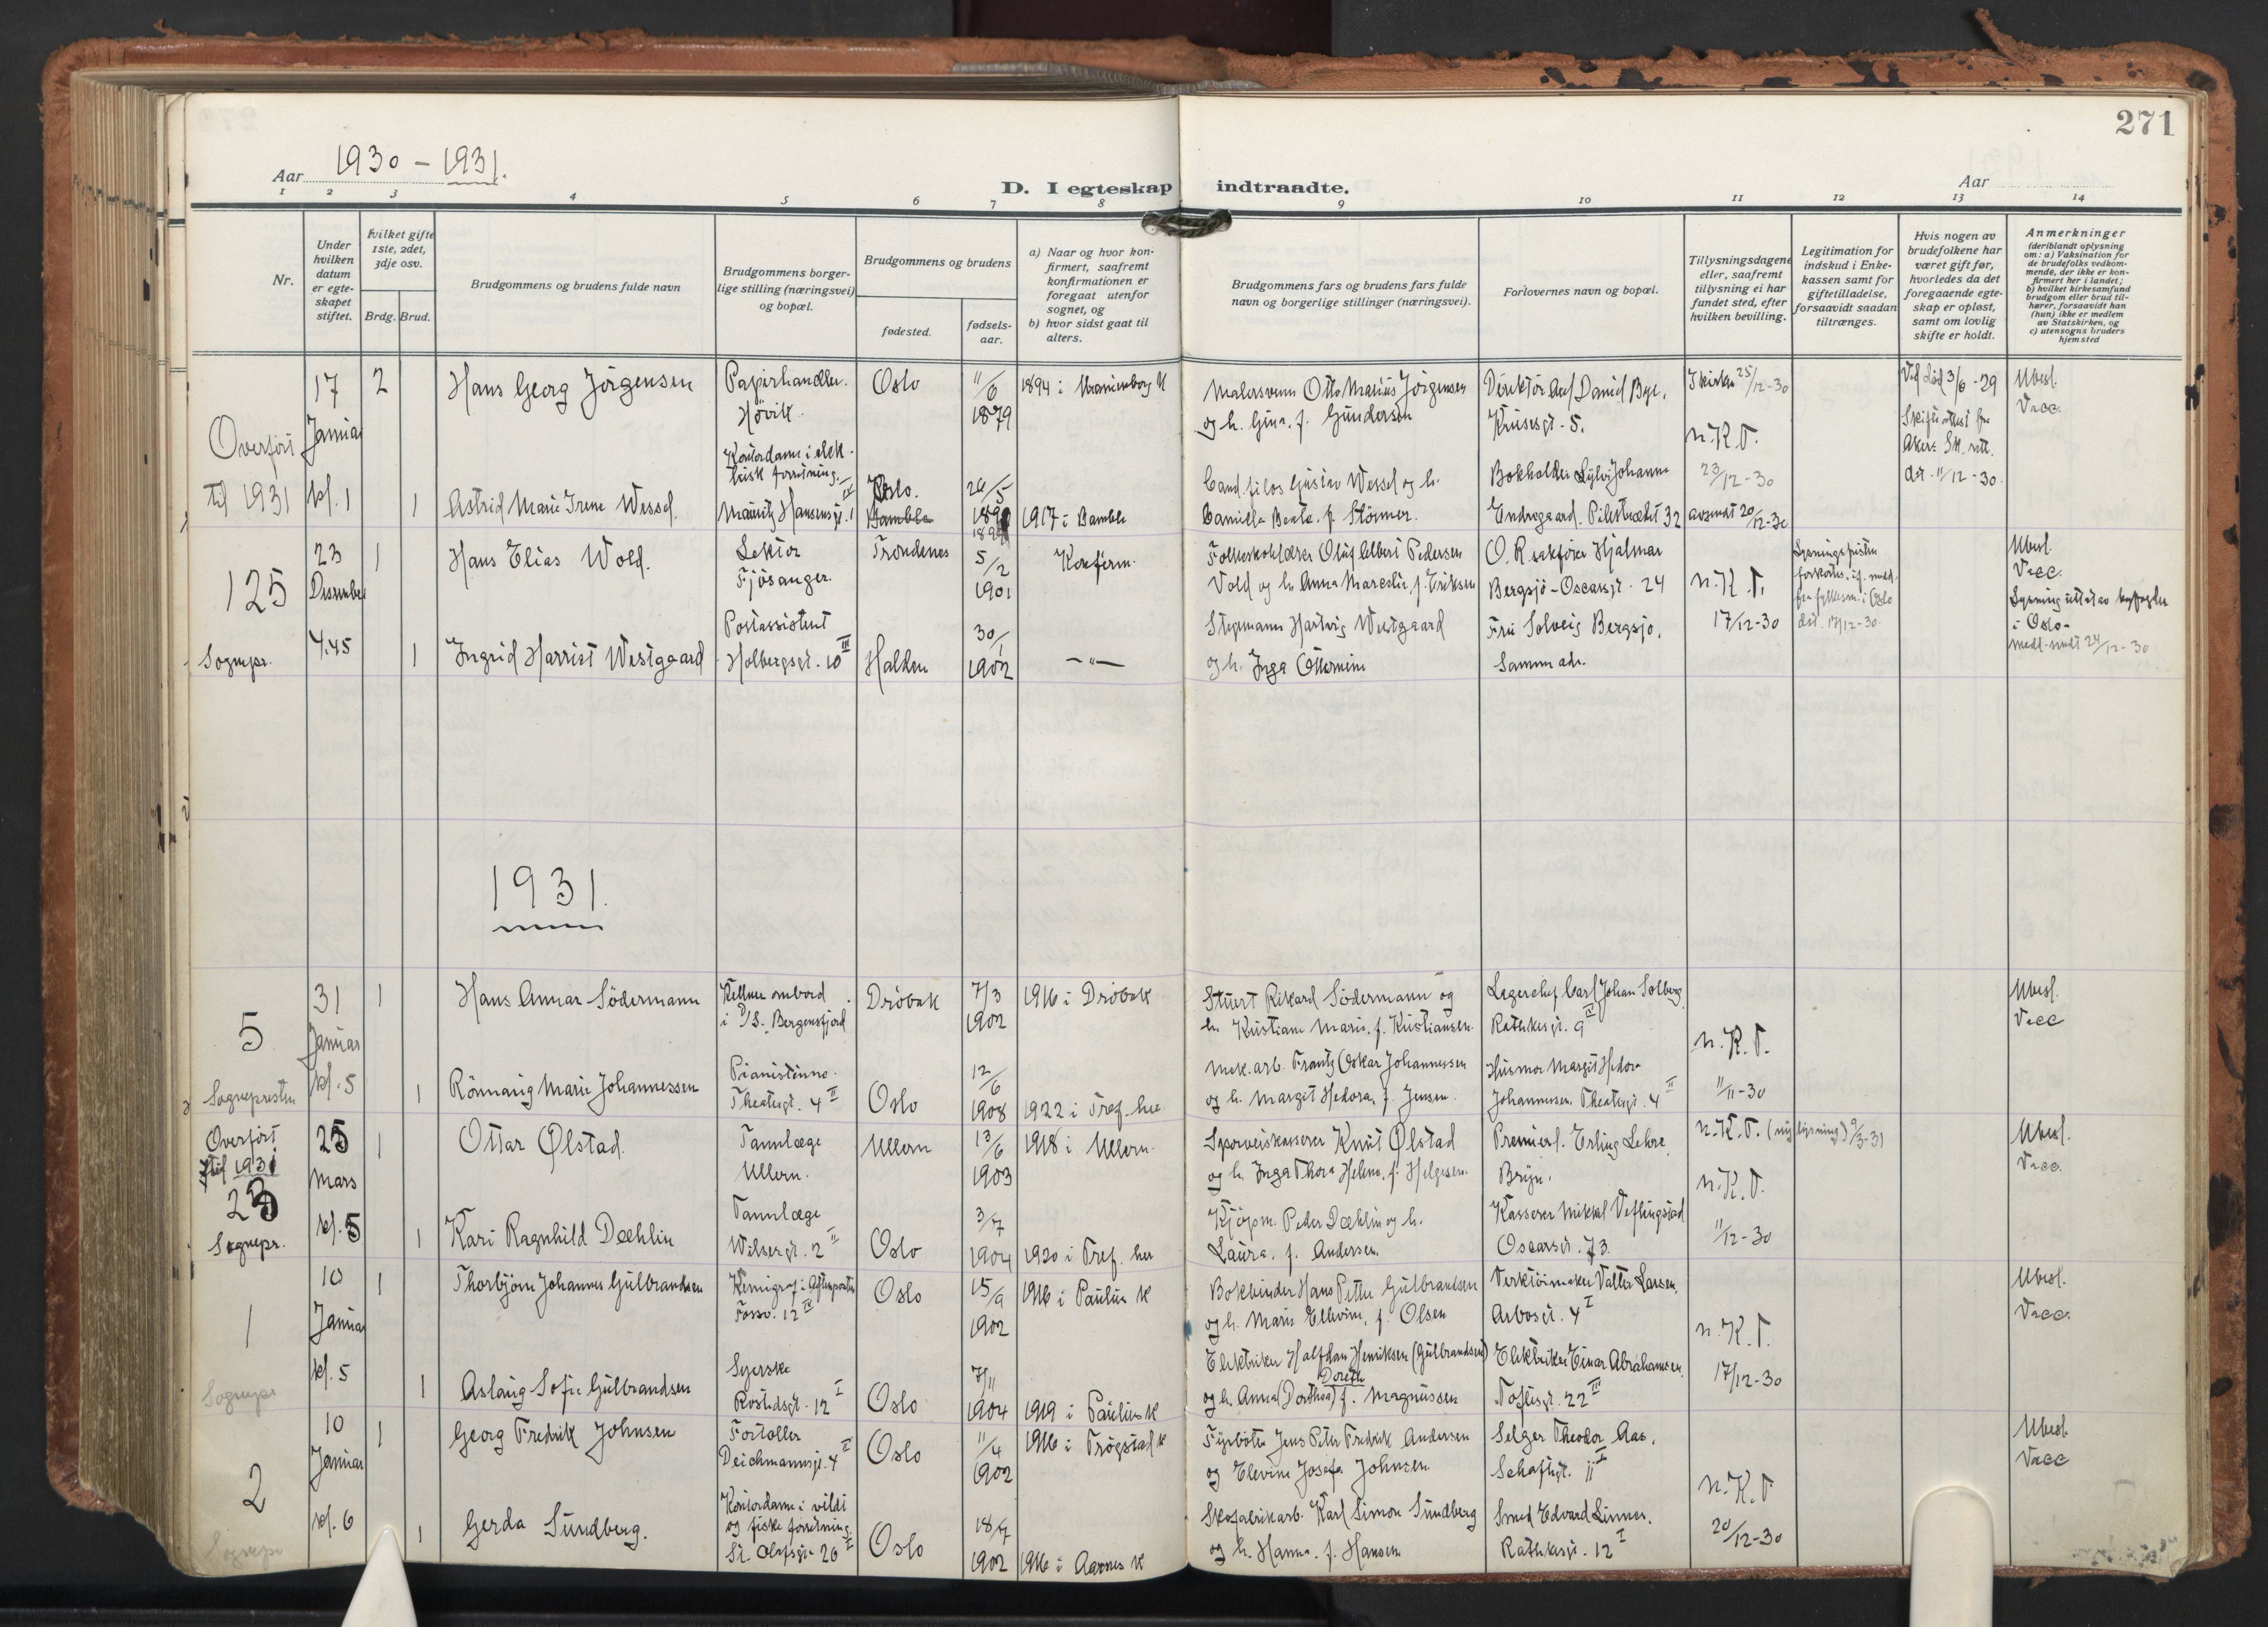 271
Aar 1930 - 1931.
D. I egteskap indtraadte.
Aar
1 2 3 4 5 6 7 8 9 10 11 12 13 14
Nr.
Under hvilken datum er egteskapet stiftet.
Hvilket gifte 1ste, 2det, 3dje osv.
Brdg. Brud.
Brudgommens og brudens fulde navn
Brudgommens borgerlige stilling (næringsvei) og bopæl.
Brudgommens og brudens
fødested.
fødselsaar.
a) Naar og hvor konfirmert, saafremt konfirmationen er foregaat utenfor sognet, og
b) hvor sidst gaat til alters.
Brudgommens fars og brudens fars fulde navn og borgerlige stillinger (næringsvei).
Forlovernes navn og bopæl.
Tillysningsdagene eller, saafremt tillysning ei har fundet sted, efter hvilken bevilling.
Legitimation for indskud i Enkekassen samt for giftetilladelse, forsaavidt saadan tiltrænges.
Hvis nogen av brudefolkene har været gift før, hvorledes da det foregaaende egteskap er opløst, samt om lovlig skifte er holdt.
Anmerkninger
(deriblandt oplysning om: a) Vaksination for de brudefolks vedkommende, der ikke er konfirmert her i landet;
b) hvilket kirkesamfund brudgom eller brud tilhører, forsaavidt han (hun) ikke er medlem av Statskirken, og
c) utensogns bruders hjemsted
Overført til 1931
17 Januar kl. 1
2
Hans Georg Jörgensen
Papirhandler. Hövik.
Oslo
11/6 1879
1894 i Uranienborg K
Malersvenn Otto Marius Jörgensen
og h. Gina. f. Gundersen
Direktör Daniel Bye.
Kruses gt. 5.
I kirken 25/12-30
n.K.T.
23/12-30
avsendt 20/12-30
Ved död 3/6-29
Skifteattest fra
Akers Sk. rett.
dat. 11/12-30.
Ubesl.
Vacc.
1
Astrid Marie Irene Wessel.
Kontordame i elektrisk forretning.
Mauritz Hansens gt. 1 IV
Oslo.
Bamble
26/5
1899
1917 i Bamble
Cand. filos Gustav Wessel og h.
Camilla Beate. f. Störmer.
Bokholder Sylvi Johanne
Endregaard. Pilestredet 32
125
Sognepr.
23 Desember 4.45
1
Hans Elias Wold.
Lektor
Fjösanger.
Trondenes
5/2 1901
Konferm.
Folkeskolelærer Oluf Albert Pedersen
Vold og h. Anna Marcelie, f. Eriksen
O.R. sakförer Hjalmar
Bergsjö - Oscarsgt. 24
n.K.T.
17/12-30
Lysningsfristen
forkortes
dat. 17/12-30.
Ubesl.
Vacc.
Lysning uttat av byfogden
i Oslo-
medd. sendt 24/12-30
1
Ingrid Harriet Westgaard
Postassistent
Holbergsgt. 10 III
Halden
30/1 1902
—"—
Styrmann Hartvig Westgaard
og h. Inga Ottermine
Fru Solveig Bergsjö.
Samme adr.
1931.
5
Sognepresten
31 Januar kl. 5
1
Hans Annar Södermann
Kellner ombord
i D/S. Bergensfjord
Dröbak
7/3 1902
1916 i Dröbak
Stuert Rikard Södermann og
h. Kristiane Marie. f. Kristiansen.
Lagerchef Carl Johan Solberg
Rathkesgt. 9 IV
n.K.T.
11/11-30
Ubesl.
Vacc
1
Rönnaug Marie Johannessen
Pianistinne.
Theatergt. 4 II
Oslo
12/6 1908
1922 i Tref. her
Mek. arb. Frantz Oskar Johannessen
og h. Margit Hedora, f. Jensen.
Husmor Margit Hedora
Johannessen. Theatergt. 4 II
Overført til 1931
23
Sognepr.
25 Mars kl. 5
1
Ottar Ølstad.
Tannlæge
Ullern.
Ullern
13/6 1903
1918 i Ullern.
Sporveiskasserer Knut Ølstad
og h. Inga Thora Helene. f. Helgesen.
Premierl. Erling Lehre.
Bryn.
n.K.T. (ny lysning) 9/3-31
n.K.T.
11/12-30
Ubesl.
Vacc.
1
Kari Ragnhild Dæhlin
Tannlæge
Wilsesgt. 2 II
Oslo
3/7 1904
1920 i Tref. her
Kjöpm. Peder Dæhlin og h.
Laura. f. Andersen.
Kasserer Mikkel Veflingstad
Oscarsgt. 73.
1
Sognepr
10 Januar kl. 5
1
Thorbjörn Johannes Gulbrandsen
Kemigraf i Aftenposten
Fossv. 12 IV
Oslo
15/9 1902
1916 i Paulus K
Bokbinder Hans Petter Gulbrandsen
og h. Marie Ellevine, f. Olsen
Verktöimaker Valter Larsen.
Arbosgt. 4 I
n.K.T.
17/12-30
Ubesl.
Vacc.
1
Aslaug Sofie Gulbrandsen
Syerske
Rostedsgt. 12 I
Oslo
7/11 1904
1919 i Paulus K
Elektriker Halfdan Henriksen (Gulbrandsen)
Doreth
og h. Anna (Dorthea) f. Magnussen
Elektriker Einar Abrahamsen.
Toftesgt. 22 III
2
Sognepr
10 Januar kl. 6
1
Georg Fredrik Johnsen
Fortoller
Deichmannsgt. 4 II
Oslo
11/4 1902
1916 i Trögstad K
Fyrböter Jens Peter Fredrik Andersen
og Elevine Josefa Johnsen
Selger Theodor Aas.
Schaftgt. 11 I
n.K.T
20/12-30
Ubesl.
Vacc
1
Gerda Sundberg.
Kontordame i vildt
og fiske forretning.
St. Olafsgt. 26 I
Oslo
18/7 1902
1916 i Aarnes K
Skofabrikarb. Karl Simon Sundberg
og h. Hanna. f. Hansen
Smed Edvard Linnes.
Rathkesgt. 12 I